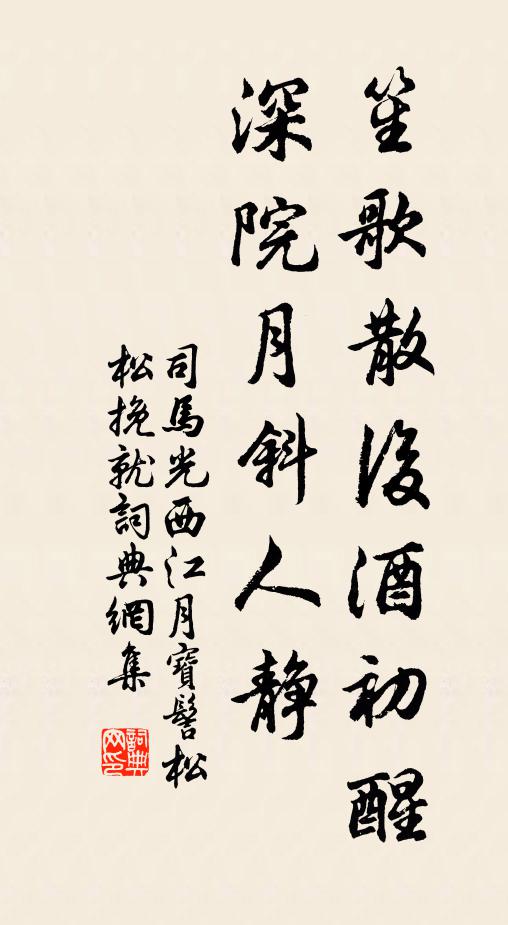 笙歌散後酒初醒
深院月斜人静
司馬光西江月寶髻松
松挽就詞典網集
詞典網印